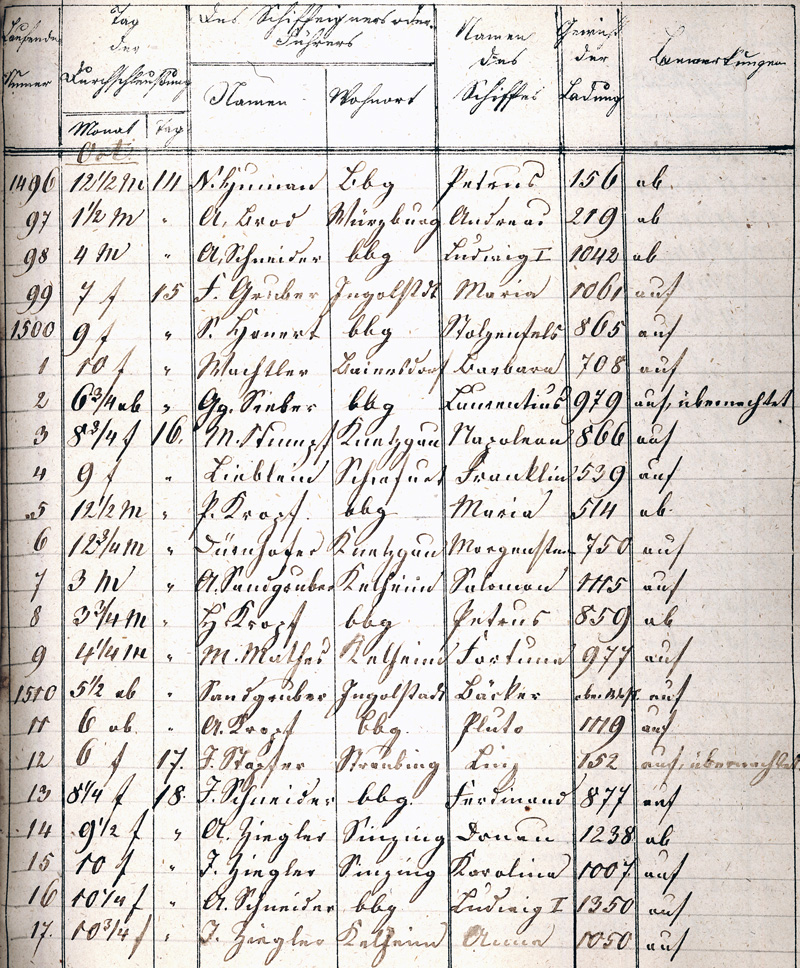 Laufende Numer | Tag der Durchschleußung | Des Schiffeigners oder Führers | Namen des Schiffes | Gewicht der Ladung | Bemerkungen
Monat | Tag | Namen | Wohnort
Oct.
1496 12 1/2 M 14 N. Hüman Bbg Petrus 156 ab
97 1 1/2 M " A. Brod Würzburg Andreas 219 ab
98 4 M " A. Schneider bbg Ludwig I 1042 ab
99 7 f 15 F. Gruber Ingolstdt Maria 1061 auf
1500 9 f " S. bbg Stolzenfels 865 auf
1 10 f " Wachtler Baiersdorf Barbara 708 auf
2 6 3/4 ab " Gg. Sieber bbg Laurentius 979 auf, übernachtet
3 8 3/4 f 16. M. Stumpf Knetzgau Napoleon 866 auf
4 9 f " Lieblein Franklin 539 auf
5 12 1/2 M " P. Kropf bbg Maria 514 ab
6 12 3/4 M " Dürnhofer Knetzgau Morgenstern 750 auf
7 3 M " A. Sandgruber Kelheim Salomon 1115 auf
8 3 3/4 M " H Kropf bbg Petrus 859 ab
9 4 1/4 M " M. Mathes Kelheim Fortuna 977 auf
1510 5 1/2 ab " Sandgruber Ingolstadt Bäcker auf
11 6 ab " A. Kropf bbg Pluto 1119 auf
12 6 f 17. J. Stapfer Straubing Linz 152 auf, übernachtet
13 8 1/4 f 18. J. Schneider bbg. Ferdinand 877 auf
14 9 1/2 f " A. Ziegler Sinzing Donau 1238 ab
15 10 f " J. Ziegler Sinzing Karolina 1007 auf
16 10 1/4 f " A. Schneider bbg Ludwig I 1350 auf
17. 10 3/4 f " J. Ziegler Kelheim Anna 1050 auf